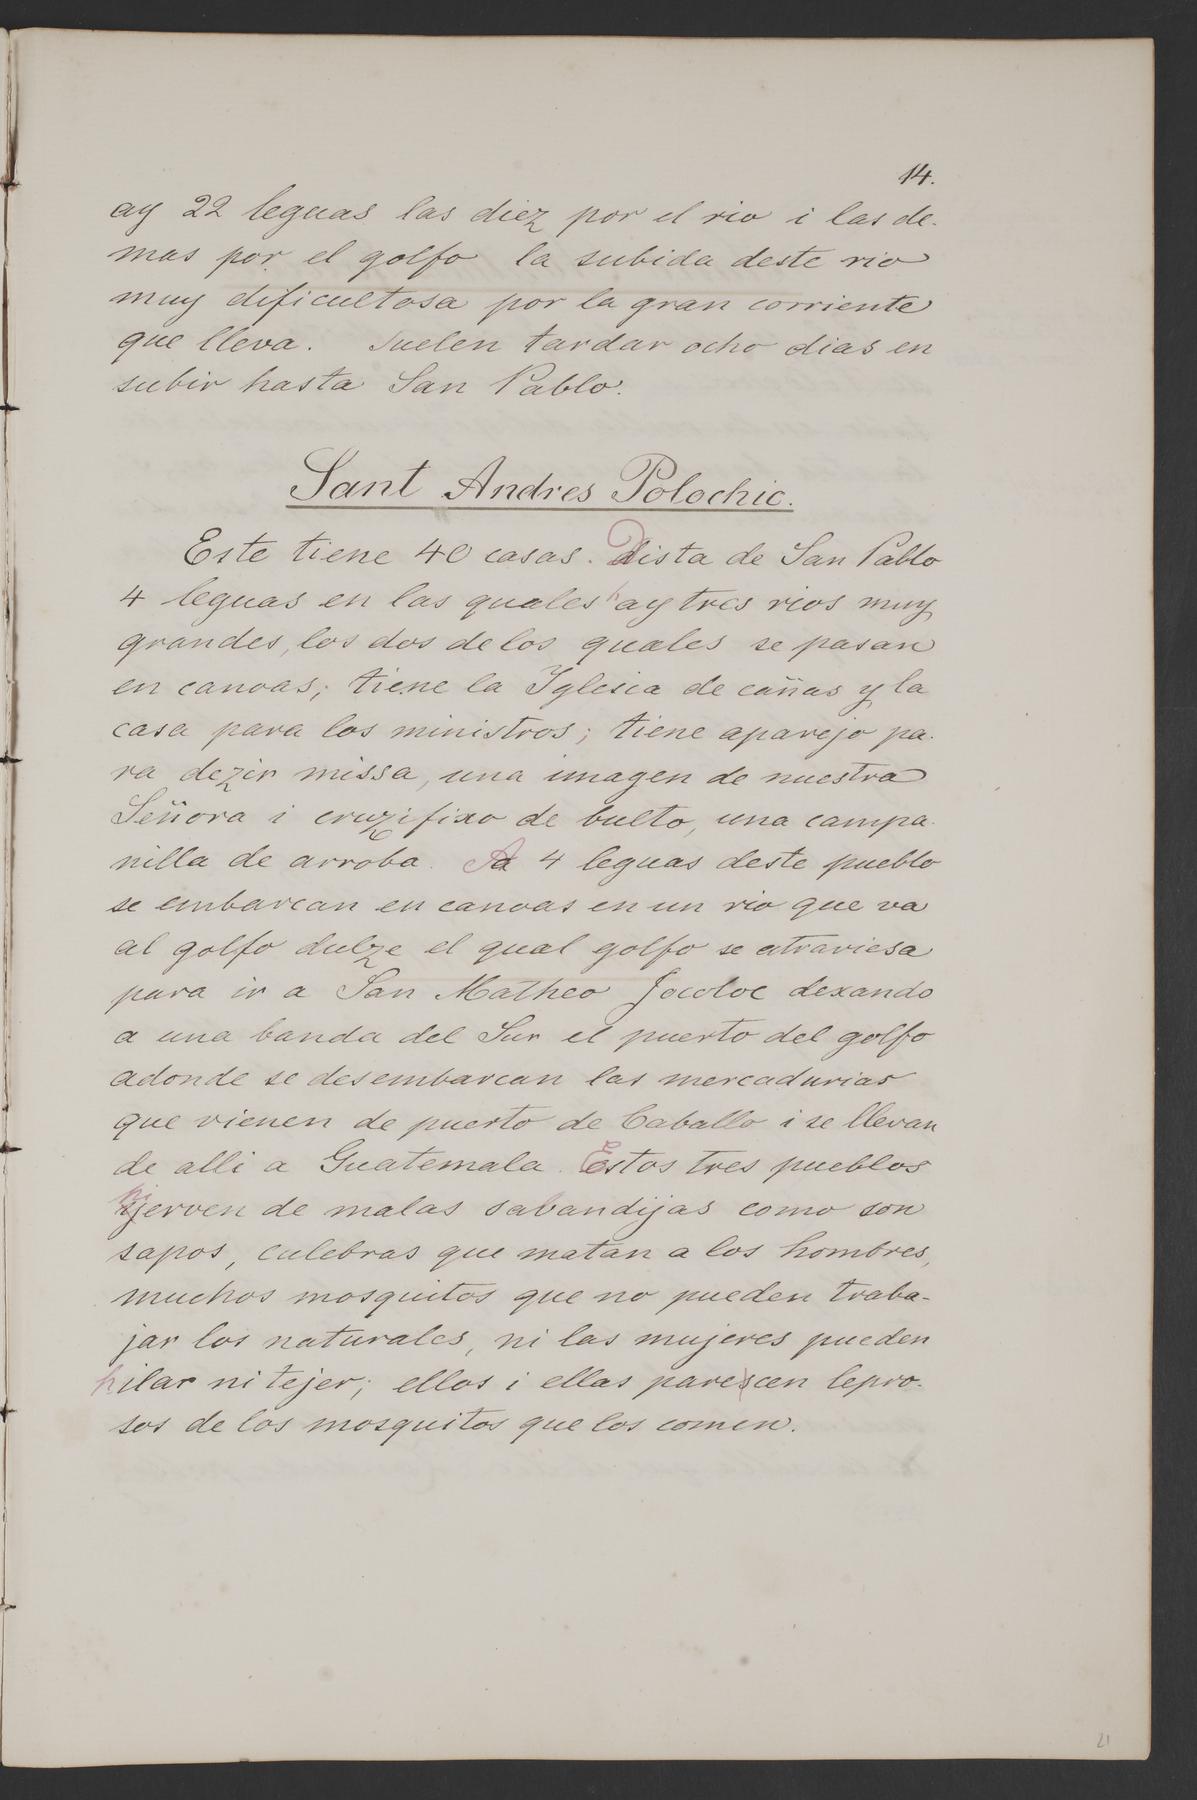 14.
ay 22 leguas las diez por el rio i las de-
mas por el golfo la subida deste rio
muy dificultosa por la gran corriente
que lleva. Suelen tardar ocho dias en
subir hasta San Pablo.
Sant Andres Polochic.
Este tiene 40 casas. Dista de San Pablo
4 leguas en las quales hay tres rios muy
grandes, los dos de los quales se pasan
en canoas; tiene la Iglesia de cañas y la
casa para los ministros; tiene aparejo pa-
ra dezir missa, una imagen de nuestra
Señora i cruzifixo de bulto, una campa-
nilla de arroba. A 4 leguas deste pueblo
se embarcan en canoas en un rio que va
al golfo dulze el qual golfo se atraviesa
para ir a San Matheo Jocoloc dexando
a una banda del Sur el puerto del golfo
adonde se desembarcan las mercadurias
que vienen de puerto de Caballo i se llevan
de alli a Guatemala. Estos tres pueblos
hierven de malas sabandijas como son
sapos, culebras que matan a los hombres,
muchos mosquitos que no pueden traba-
jar los naturales, ni las mujeres pueden
hilar ni tejer; ellos i ellas parescen lepro-
sos de los mosquitos que los comen.
21